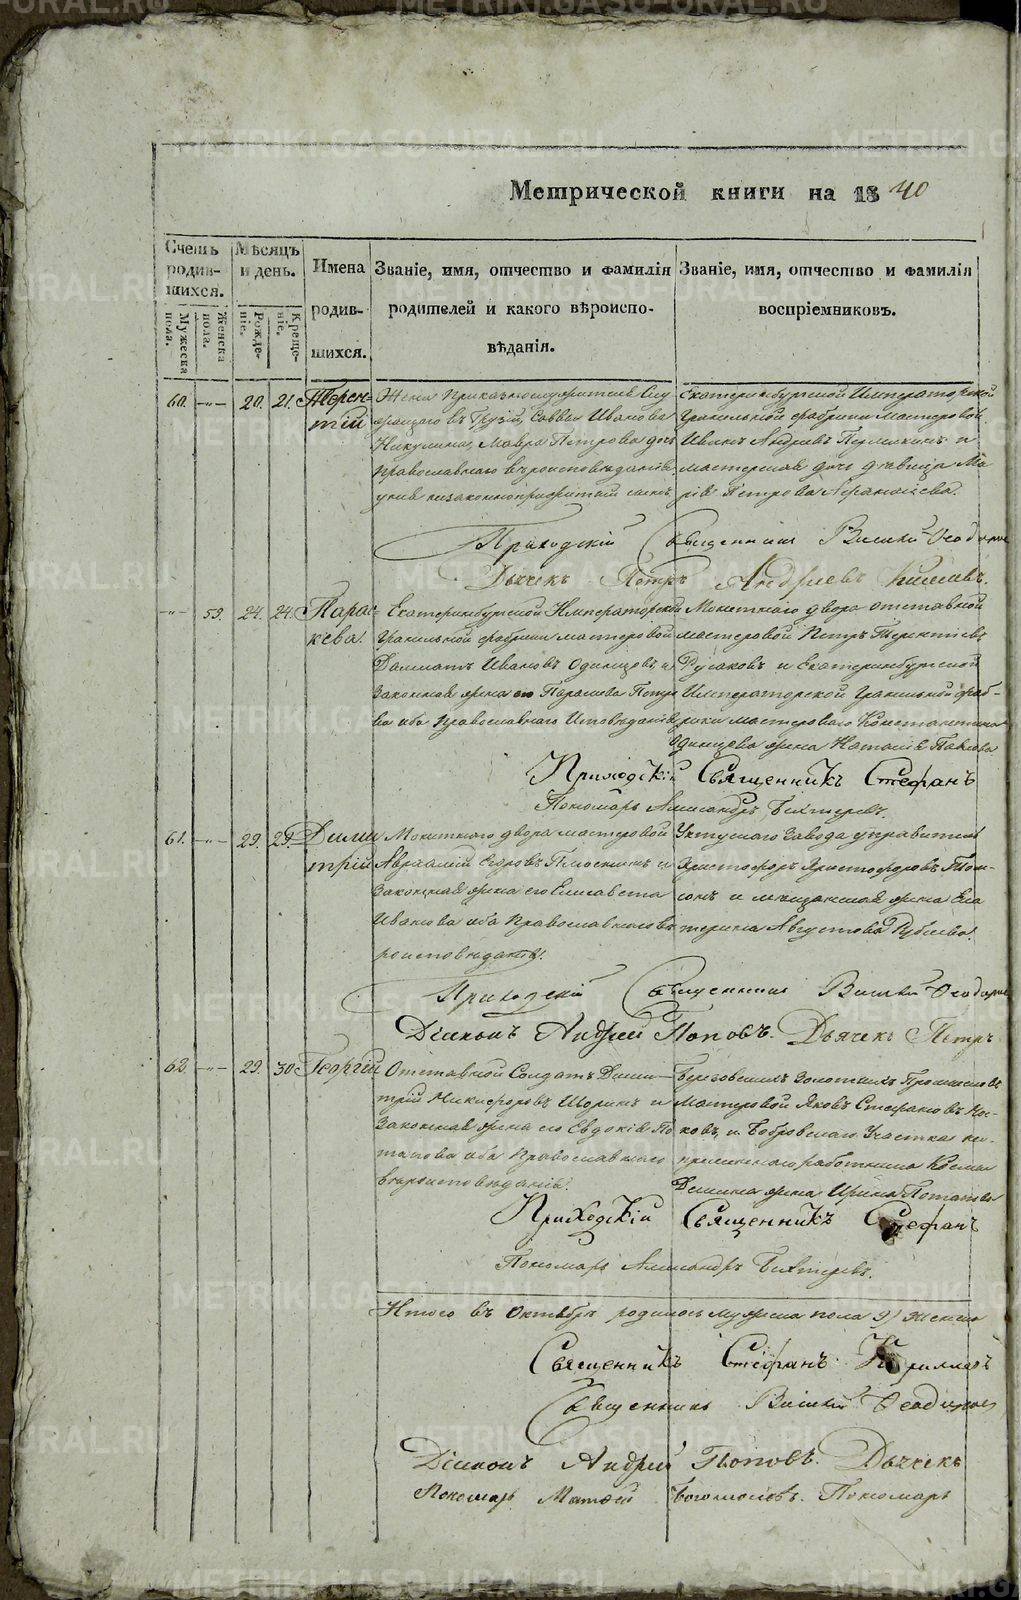 Метрической книги на 1840
Счетъ родившихся.
Мѣсяцъ и день.
Имена родившихся.
Званіе, имя, отчество и фамилія родителей и какого вѣроисповѣданія.
Званіе, имя, отчество и фамилія воспріемниковъ.
Мужеска пола.
Женска пола.
Рожденіе.
Крещеніе.
60. -"- 20. 21. Терентій
Жена
Грузіи, Саввы Иванова
Никулина, Мавра Петрова дочь
православнаго вѣроисповѣданія
у нея незаконноприжитый сынъ.
Екатеринбургской Императорской
гранильной фабрики мастеровой
Иванъ Андреевъ Пермикинъ и
мастерская дочь дѣвица Ма
рія Петрова
Приходскій Священникъ Василій Ѳеодоров
Дьячекъ Петръ Андреевъ
-"- 59. 24. 24. Парас-
кева.
Екатеринбургской Императорской
гранильной фабрики мастеровой
Далматъ Ивановъ Одинцовъ, и
законная жена его Параскева Петро
ва оба Православнаго Исповѣданія
Монетнаго двора отставной
мастеровой Петръ Терентіевъ
Русаковъ и Екатеринбургской
Императорской Гранильной фаб-
рики мастероваго Константина
Одинцова жена Наталія Павлова
Приходскій Священникъ Стефанъ
Пономарь Александръ Бихтеревъ.
61. -"- 29. 29. Дими
трій
Монетнаго двора мастеровой
Авраамій Егоровъ Плюснинъ и
законная жена его Елисавета
Иванова оба Православнаго вѣ
роисповѣданія.
Уктусскаго Завода управитель
Христофоръ Христофоровъ Том-
сонъ и мѣщанская жена Ека
терина Августова
Приходскій Священникъ Василій Ѳеодоров
Діаконъ Андрей Поповъ. Дьячекъ Петръ
62. -"- 29. 30. Георгій
Отставной Солдатъ Дими-
трій Никифоровъ Шоринъ и
законная жена его Евдокія По
тапова оба Православнаго
вѣроисповѣданія.
Березовскихъ золотыхъ Промысловъ
Мастеровой Яковъ Стефановъ Но-
ковъ, и Бобровскаго Участка не-
премѣннаго работника Космы
Демина жена Ирина Потапова
Приходскій Священникъ Стефанъ
Пономарь Александръ Бихтеревъ.
Итого въ Октябрѣ родилось мужеска пола 9) женска
Священникъ Стефанъ Кирилловъ
Священникъ Василій Ѳеодоров
Діаконъ Андрей Поповъ. Дьячекъ
Пономарь Матѳей Богомоловъ. Пономарь
METRIKI.GASO-URAL.RU